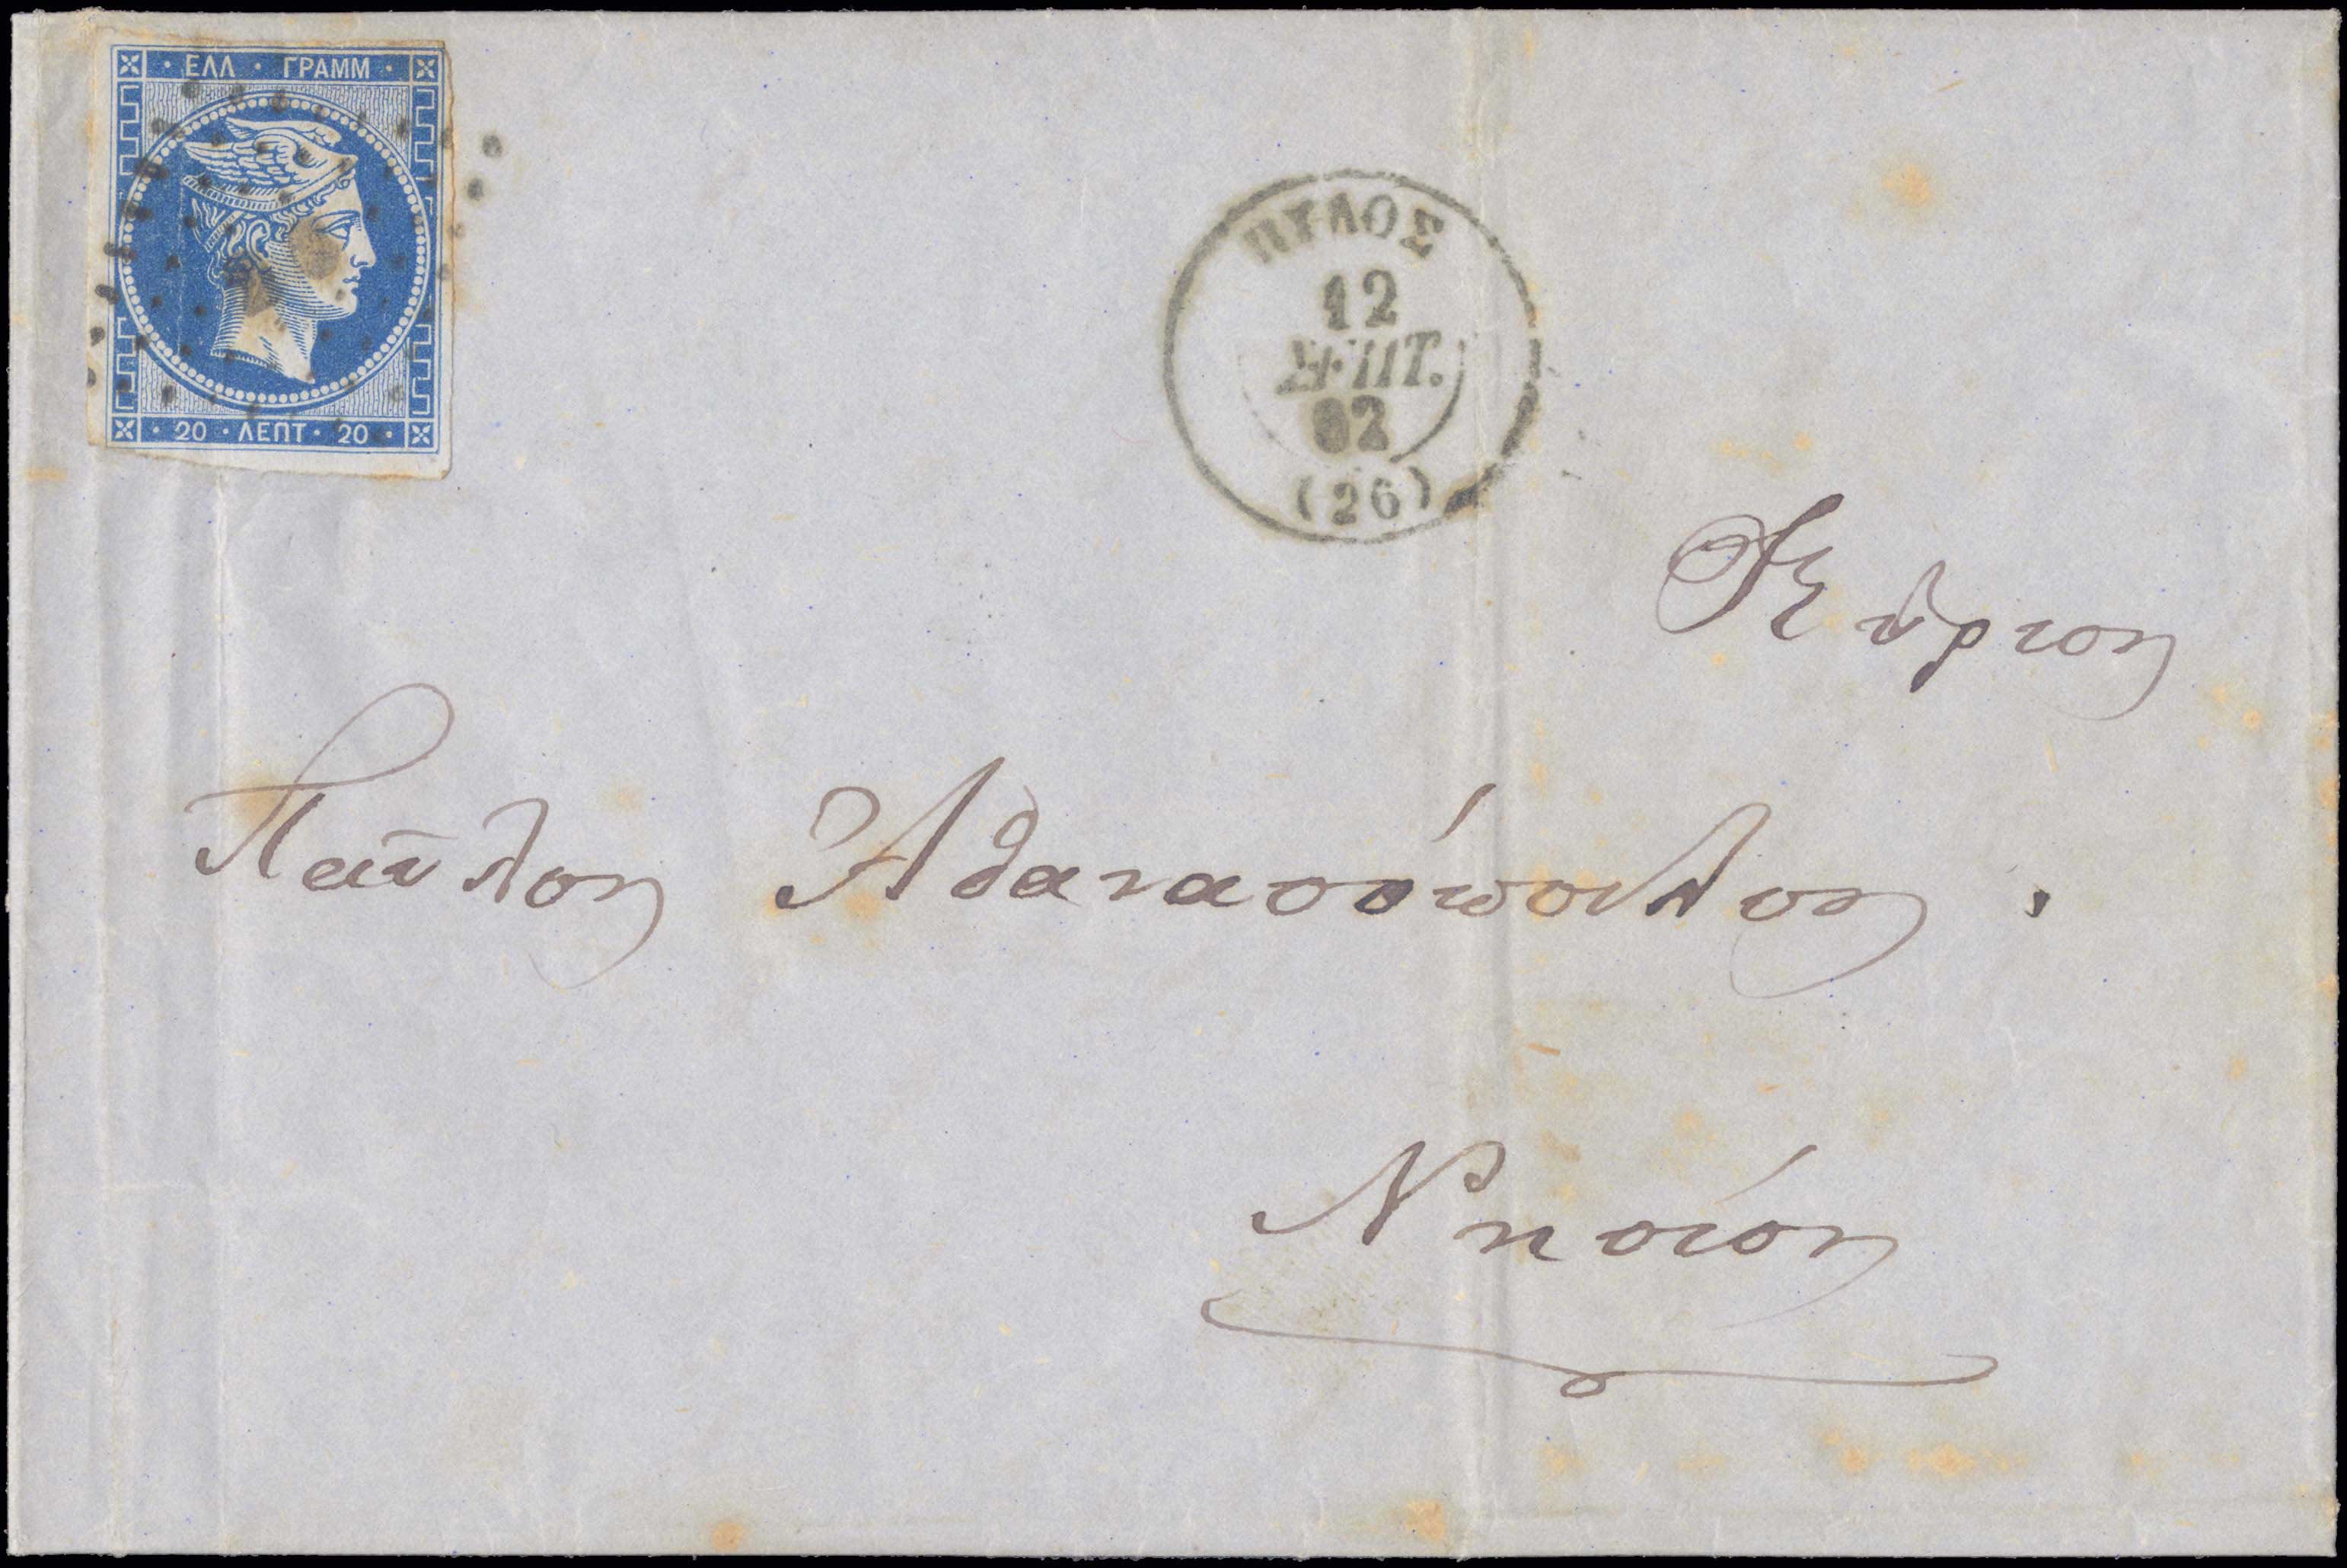 · ΕΛΛ · ΓΡΑΜΜ ·
· 20 · ΛΕΠΤ · 20 ·
ΠΥΛΟΣ
12
ΣΕΠΤ.
62
(26)
Κύριον
Παῦλον Ἀθανασόπουλον .
Νησίον